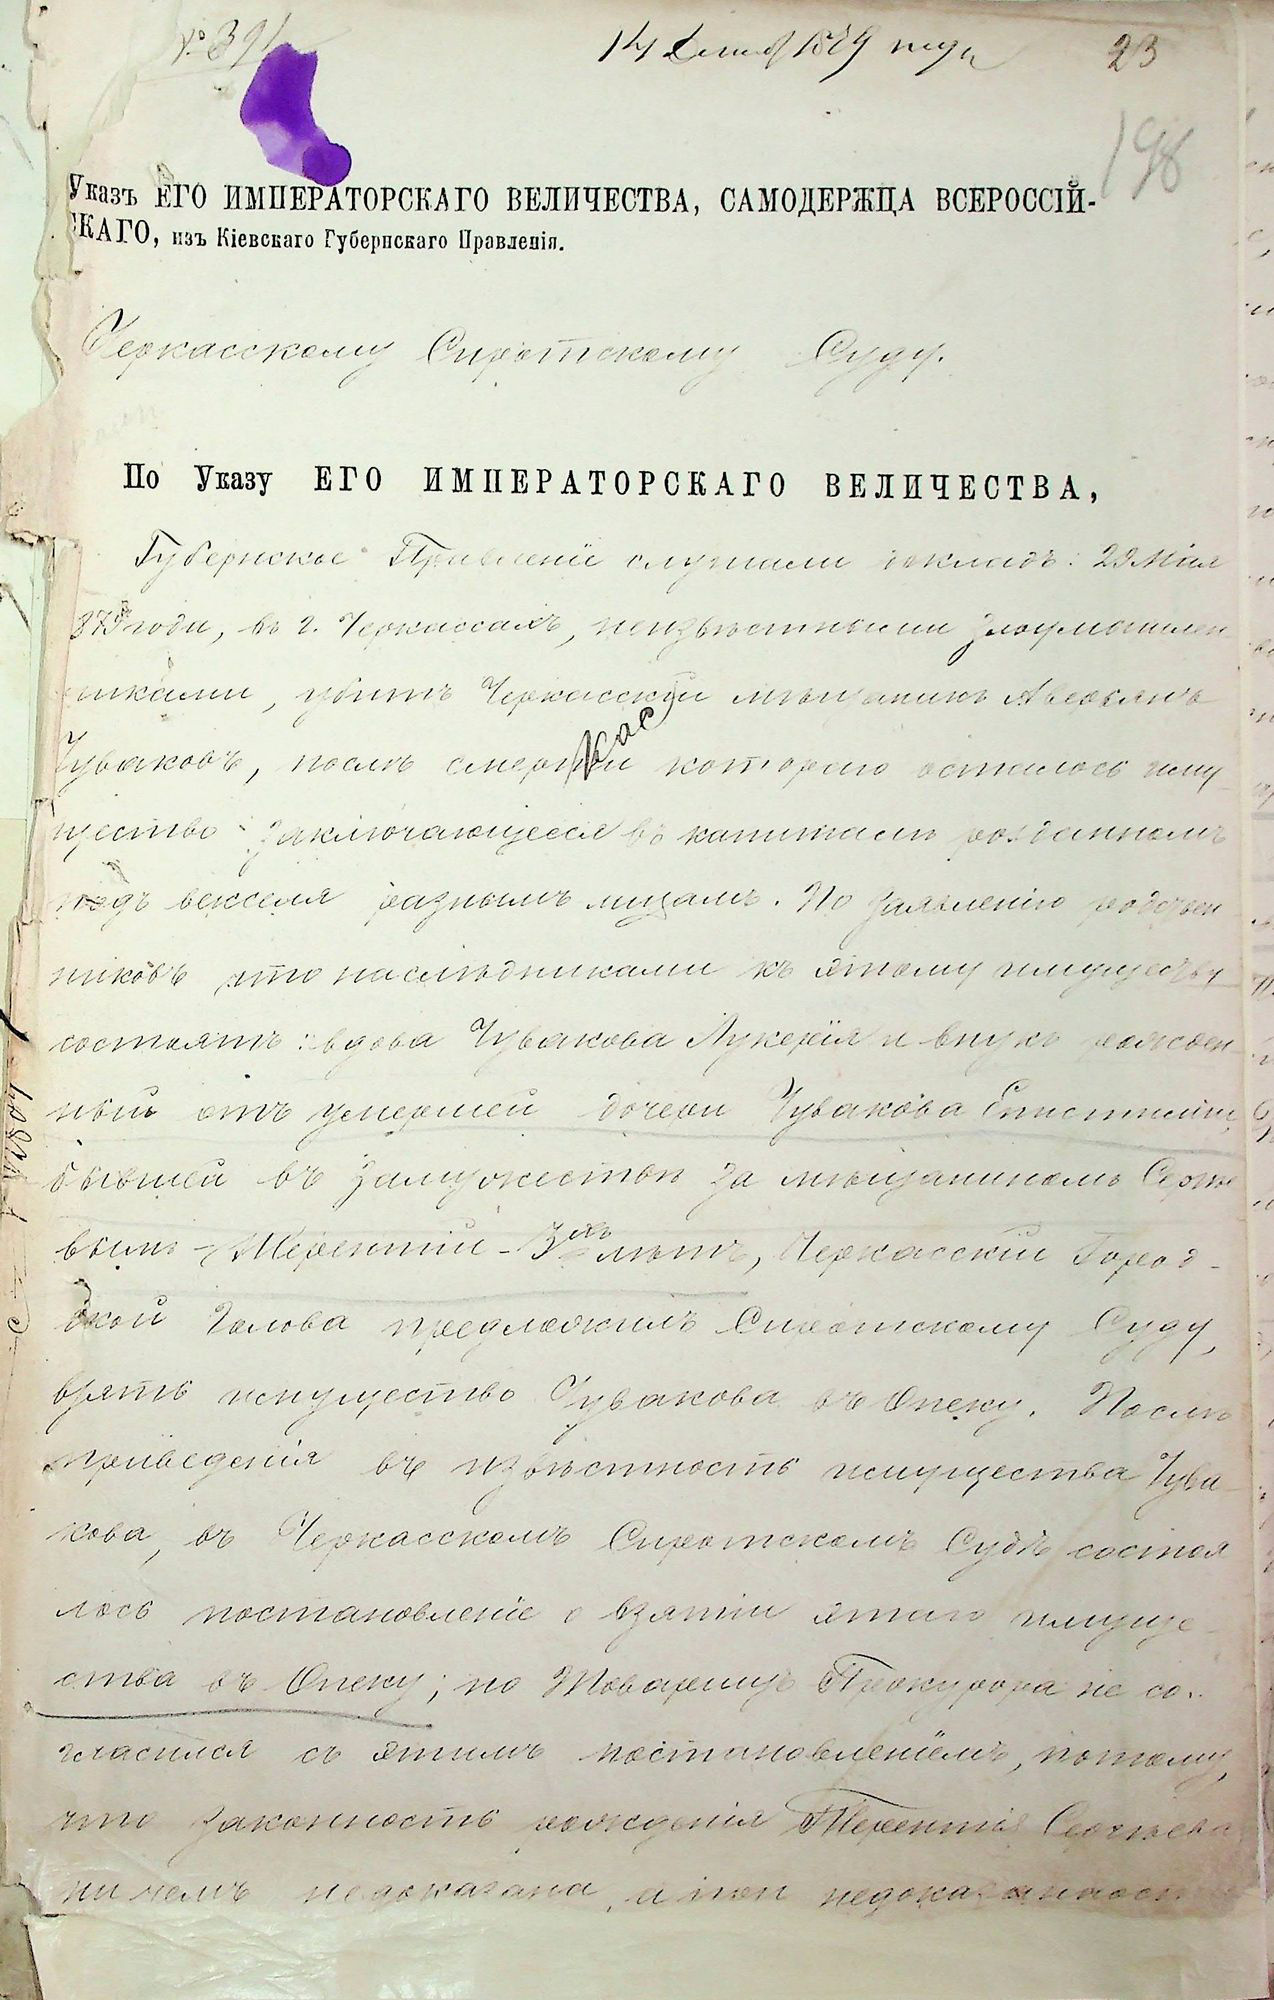 № 391
14 1879 года 23
198
Указъ ЕГО ИМПЕРАТОРСКАГО ВЕЛИЧЕСТВА, САМОДЕРЖЦА ВСЕРОССІЙ-
СКАГО, изъ Кіевскаго Губернскаго Правленія.
Черкасскому Сиротскому Суду.
По Указу ЕГО ИМПЕРАТОРСКАГО ВЕЛИЧЕСТВА,
Губернское Правленіе слушали докладъ: 29 Мая
1879 года, въ г. Черкассахъ, неизвѣстными злоумышлен
никами, убитъ Черкасскій мѣщанинъ Аверьянъ
Чуваковъ, послѣ смерти котораго осталось иму
щество заключающееся въ капиталѣ розданномъ
подъ векселя разнымъ лицамъ. По заявленію родствен
никовъ что наслѣдниками къ этому имуществу
состоятъ: вдова Чувакова Лукерія и внукъ рожден
ный отъ умершей дочери Чувакова Епистиміи,
бывшей въ замужествѣ за мѣщаниномъ Сергѣе
вымъ – Терентій – 3хъ лѣтъ, Черкасскій Город-
ской Голова предложилъ Сиротскому Суду,
взять имущество Чувакова въ Опеку. Послѣ
приведенія въ извѣстность имущества Чува-
кова, въ Черкасскомъ Сиротскомъ Судѣ состоя
лось постановленіе о взятіи этаго имуще-
ства въ Опеку; но Товарищъ Прокурора не со-
гласился съ этимъ постановленіемъ, потому,
что законность рожденія Терентія Сергѣева
ничемъ недоказана, а при недоказанности